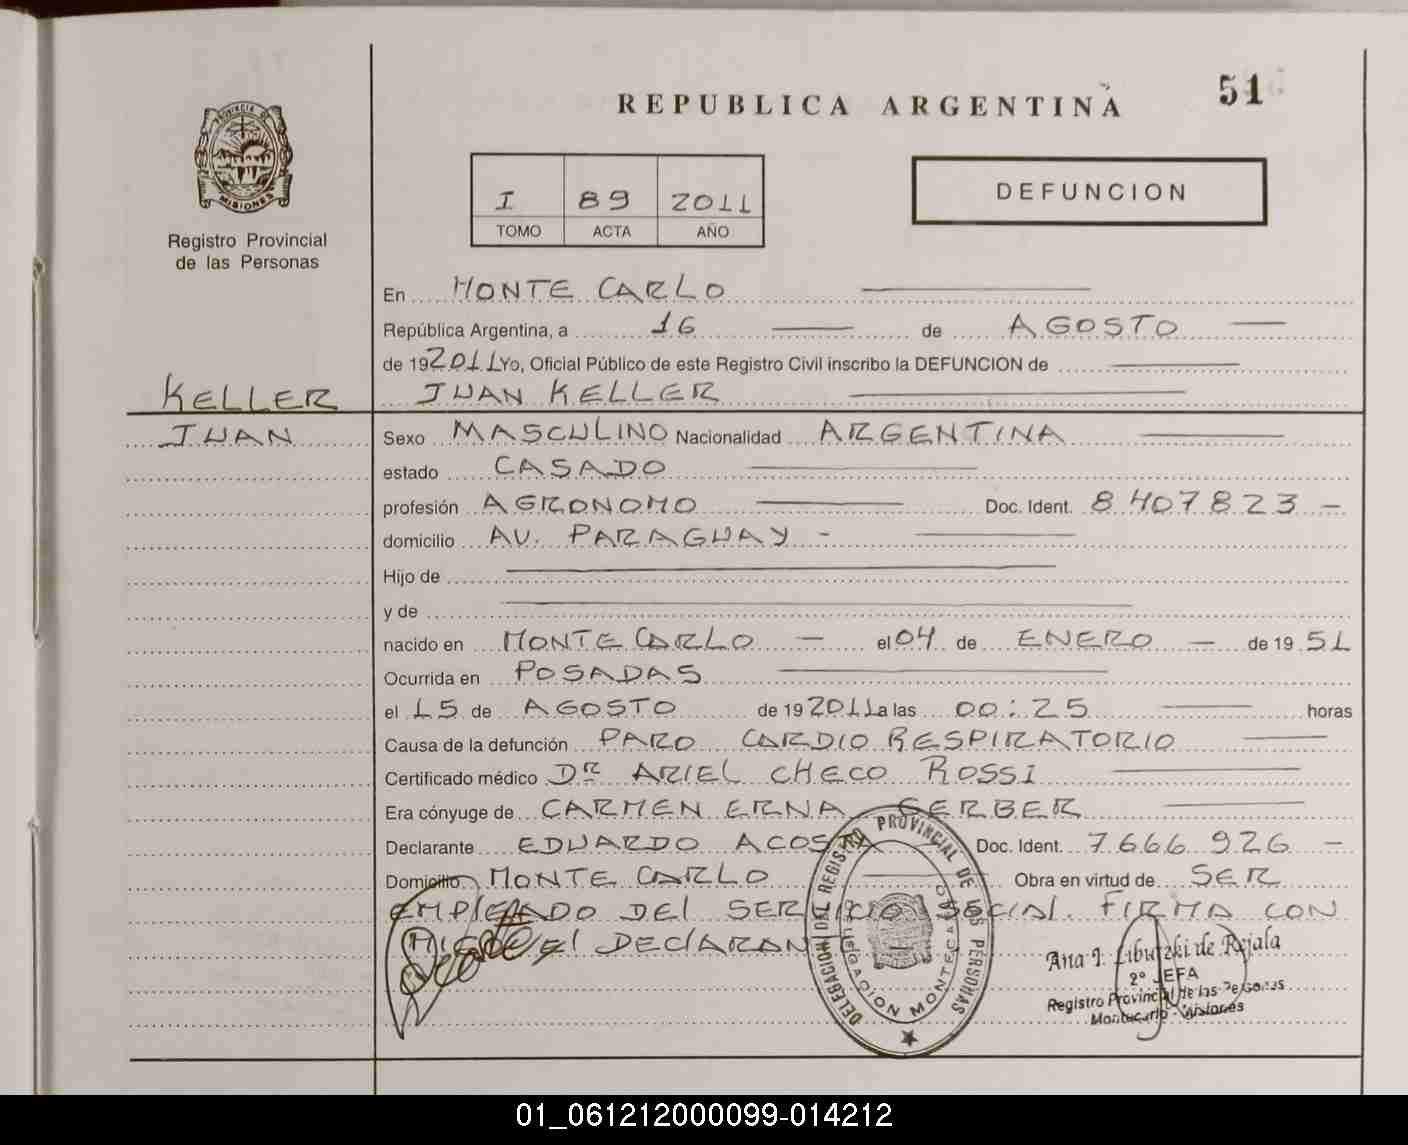 51
REPUBLICA ARGENTINA
PROVINCIA DE
MISIONES
Registro Provincial
de las Personas
I 89 2011
TOMO ACTA AÑO
DEFUNCION
En MONTE CARLO
República Argentina, a 16 de AGOSTO
de 19 2011 Yo, Oficial Público de este Registro Civil inscribo la DEFUNCION de
KELLER
JUAN KELLER
JUAN
Sexo MASCULINO Nacionalidad ARGENTINA
estado CASADO
profesión AGRONOMO Doc. Ident. 8407823 -
domicilio AV. PARAGUAY -
Hijo de
y de
nacido en MONTE CARLO - el 04 de ENERO - de 19 51
Ocurrida en POSADAS
el 15 de AGOSTO de 19 2011 a las 00:25 horas
Causa de la defunción PARO CARDIO RESPIRATORIO
Certificado médico Dr ARIEL CHECO ROSSI
Era cónyuge de CARMEN ERNA GERBER
Declarante EDUARDO ACOSTA Doc. Ident. 7.666.926 -
Domicilio MONTE CARLO Obra en virtud de SER
EMPLEADO DEL SERVICIO SOCIAL. FIRMA CON
MIGO El DEClARANTE
DELEGACION DEL REGISTRO PROVINCIAL DE LAS PERSONAS
DELEGACION MONTECARLO
Ana I. Libutzki de Rejala
2º JEFA
Registro Provincial de las Personas
Montecarlo - Misiones
01_061212000099-014212